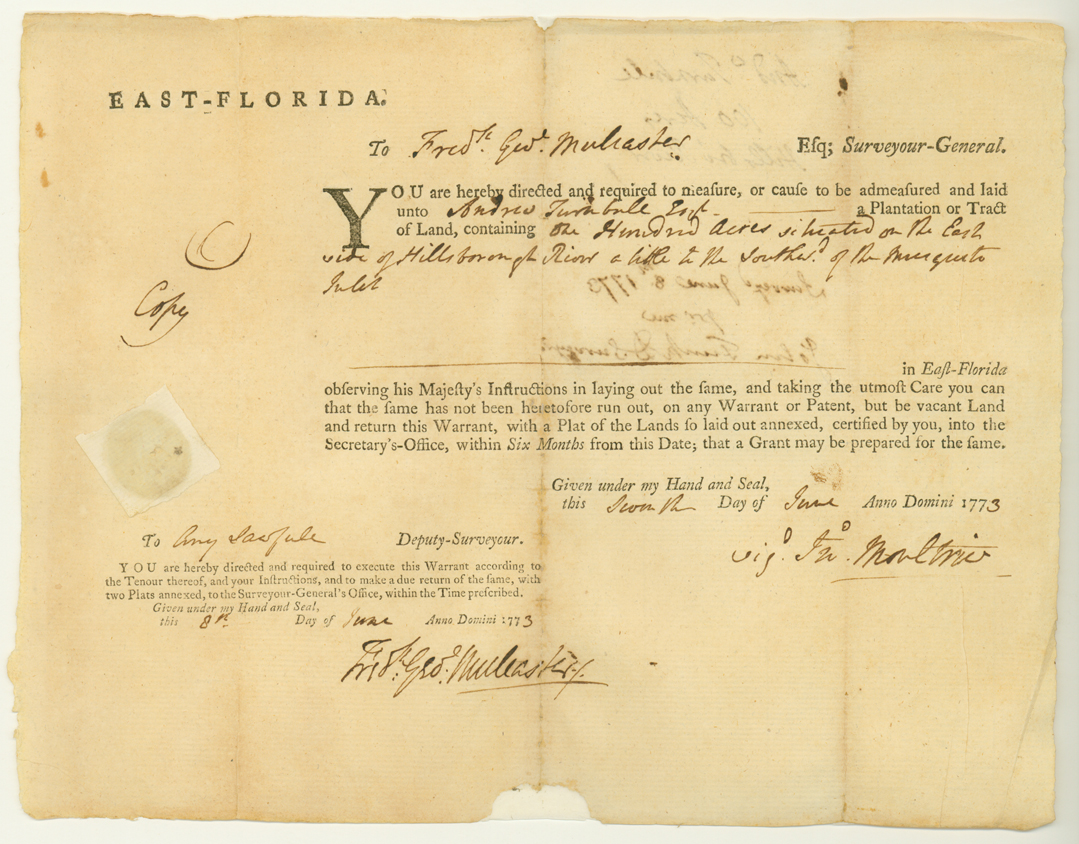 EAST-FLORIDA.
To Fredk. Geo. Mulcaster Esq; Surveyour-General.
YOU are hereby directed and required to measure, or cause to be admeasured and laid
unto Andrew Turnbull Esqr. a Plantation or Tract
of Land, containing One Hundred Acres situated on the East
side of Hillsborough River a little to the Southwd. of the Musquito
Inlet
in East-Florida
obſerving his Majeſty's Inſtructions in laying out the ſame, and taking the utmoſt Care you can
that the ſame has not been heretofore run out, on any Warrant or Patent, but be vacant Land
and return this Warrant, with a Plat of the Lands ſo laid out annexed, certified by you, into the
Secretary's-Office, within Six Months from this Date; that a Grant may be prepared for the ſame.
C
Copy
Given under my Hand and Seal,
this Seventh Day of June Anno Domini 1773
sigd. Jno. Moultrie
To Any Lawfull Deputy-Surveyour.
YOU are hereby directed and required to execute this Warrant according to
the Tenour thereof, and your Inſtructions, and to make a due return of the ſame, with
two Plats annexed, to the Surveyour-General's Office, within the Time preſcribed.
Given under my Hand and Seal,
this 8th Day of June Anno Domini 1773
Fredk. Geo. Mulcaster